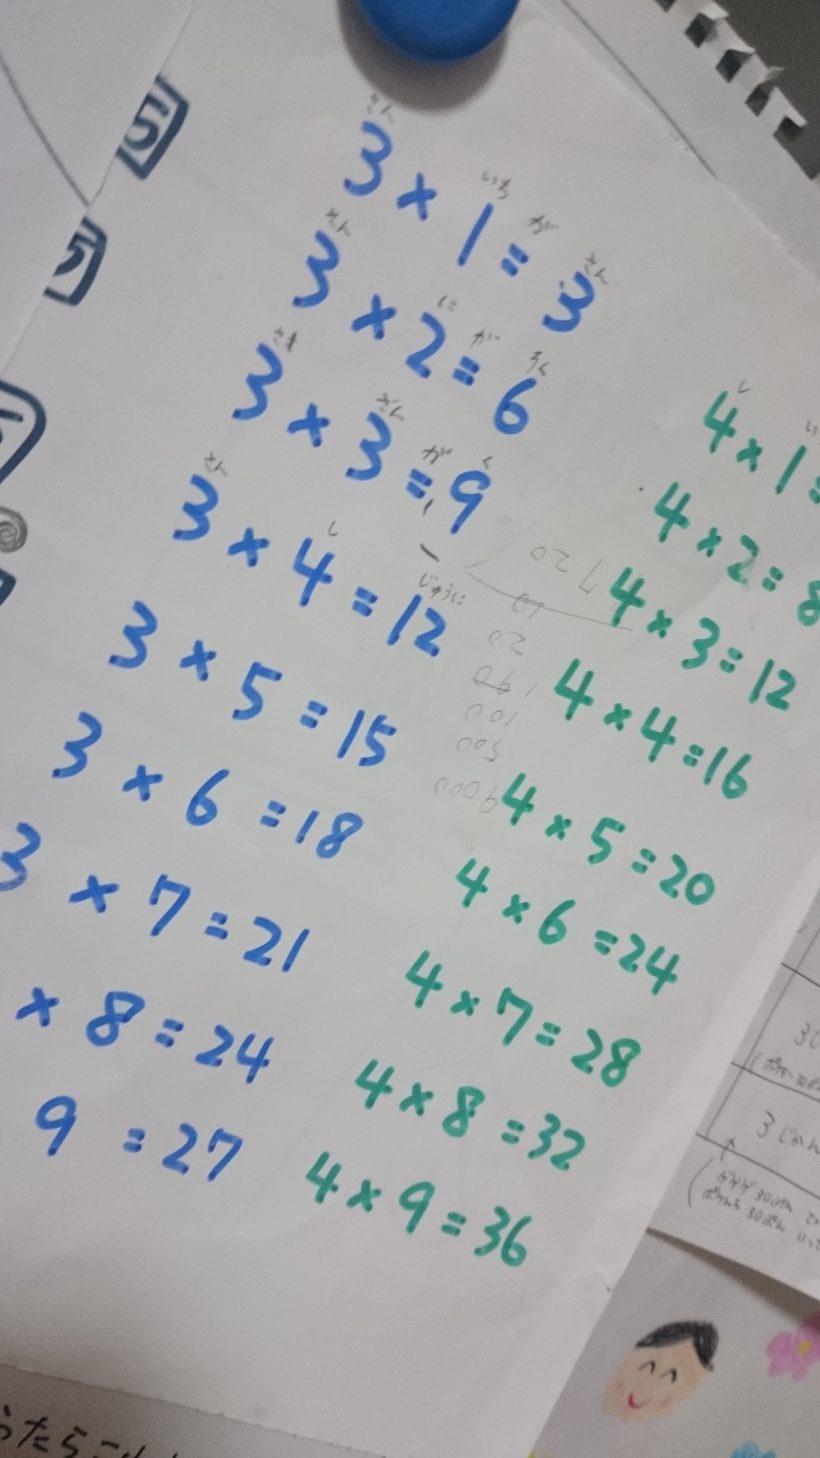 さん いち が さん
3 × 1 = 3
さん に が ろく
3 × 2 = 6
さん が く
3 × 3 = 9
さん し じゅうに
3 × 4 = 12
3 × 5 = 15
3 × 6 = 18
3 × 7 = 21
× 8 = 24
9 = 27
し
4 × 1 =
4 × 2 = 8
4 × 3 = 12
4 × 4 = 16
4 × 5 = 20
4 × 6 = 24
4 × 7 = 28
4 × 8 = 32
4 × 9 = 36
720
10
20
190
100
500
9000
3じかん